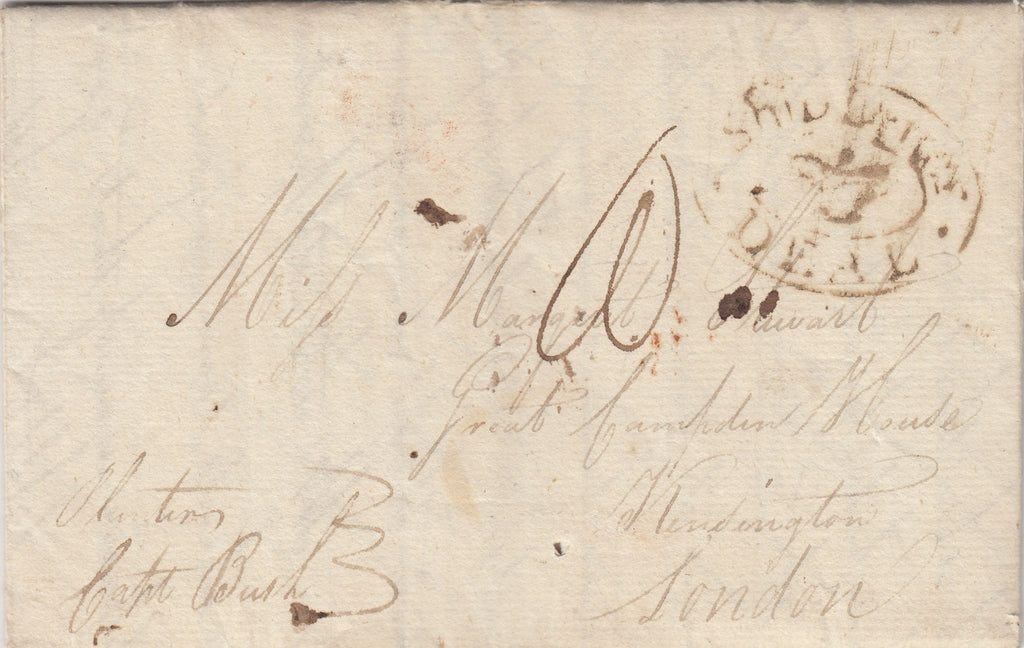 SHIP LETTER
DEAL
Miss Margaret Stewart
Great Campden House
Kensington
London
Capt Bush